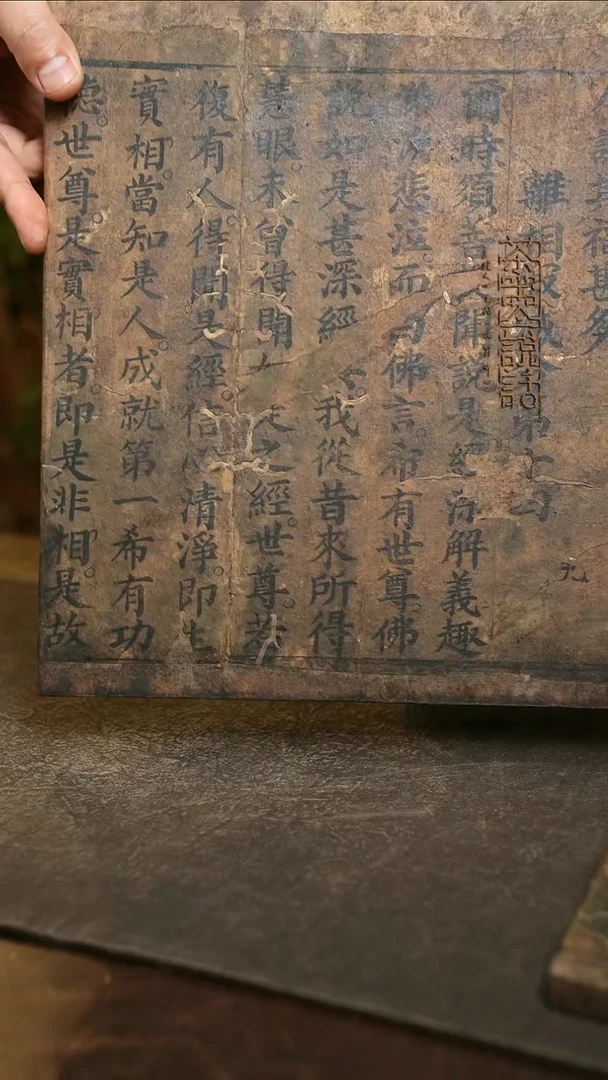 說其福甚多
離相寂滅分第十四
九
爾時須菩提聞說是經深解義趣
涕淚悲泣而白佛言。希有世尊。佛
說如是甚深經典。我從昔來所得
慧眼。未曾得聞如是之經。世尊。若
復有人。得聞是經。信心清淨。即生
實相。當知是人。成就第一希有功
德。世尊。是實相者。即是非相。是故